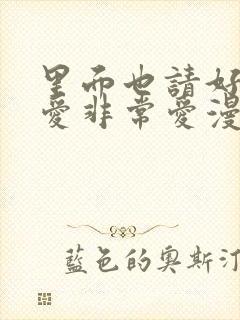 里而也請好
愛非常愛漫
藍色的奧斯汀